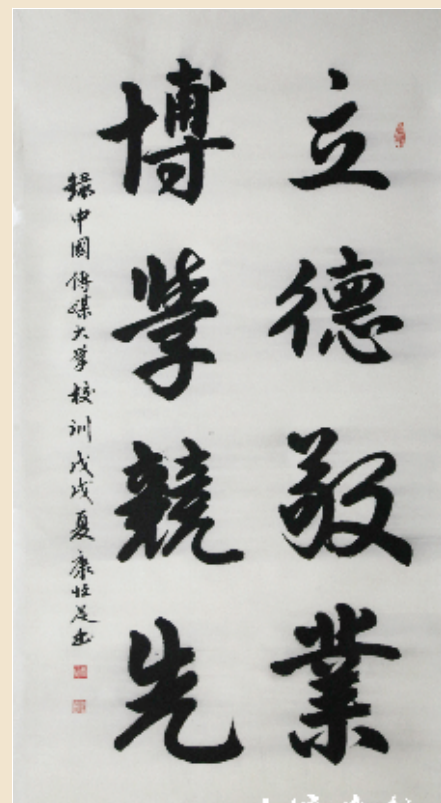 立德敬業
博學競先
錄中國傳媒大學校訓戊戌夏康